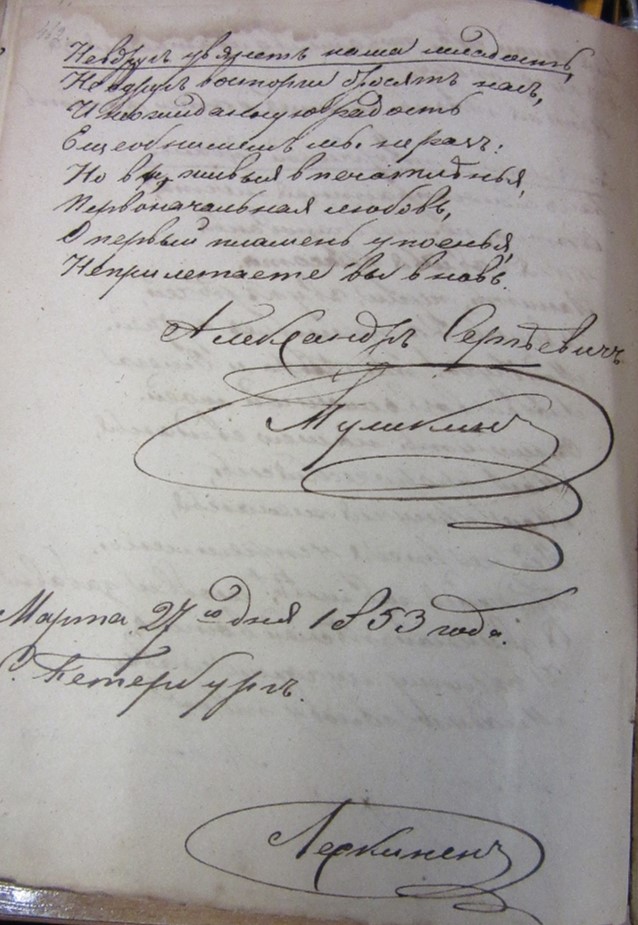 Не вдругъ увянетъ наша младость,
Не вдругъ восторги бросятъ насъ,
И неожиданную радость
Еще обнимемъ мы не разъ:
Но вы, живыя впечатлѣнья,
Первоначальная любовь,
О первый пламень упоенья,
Не прилетаете вы вновь.
Александръ Сергѣевичъ
Пушкинъ
Марта 27го дня 1853 года.
С. Петербургъ.